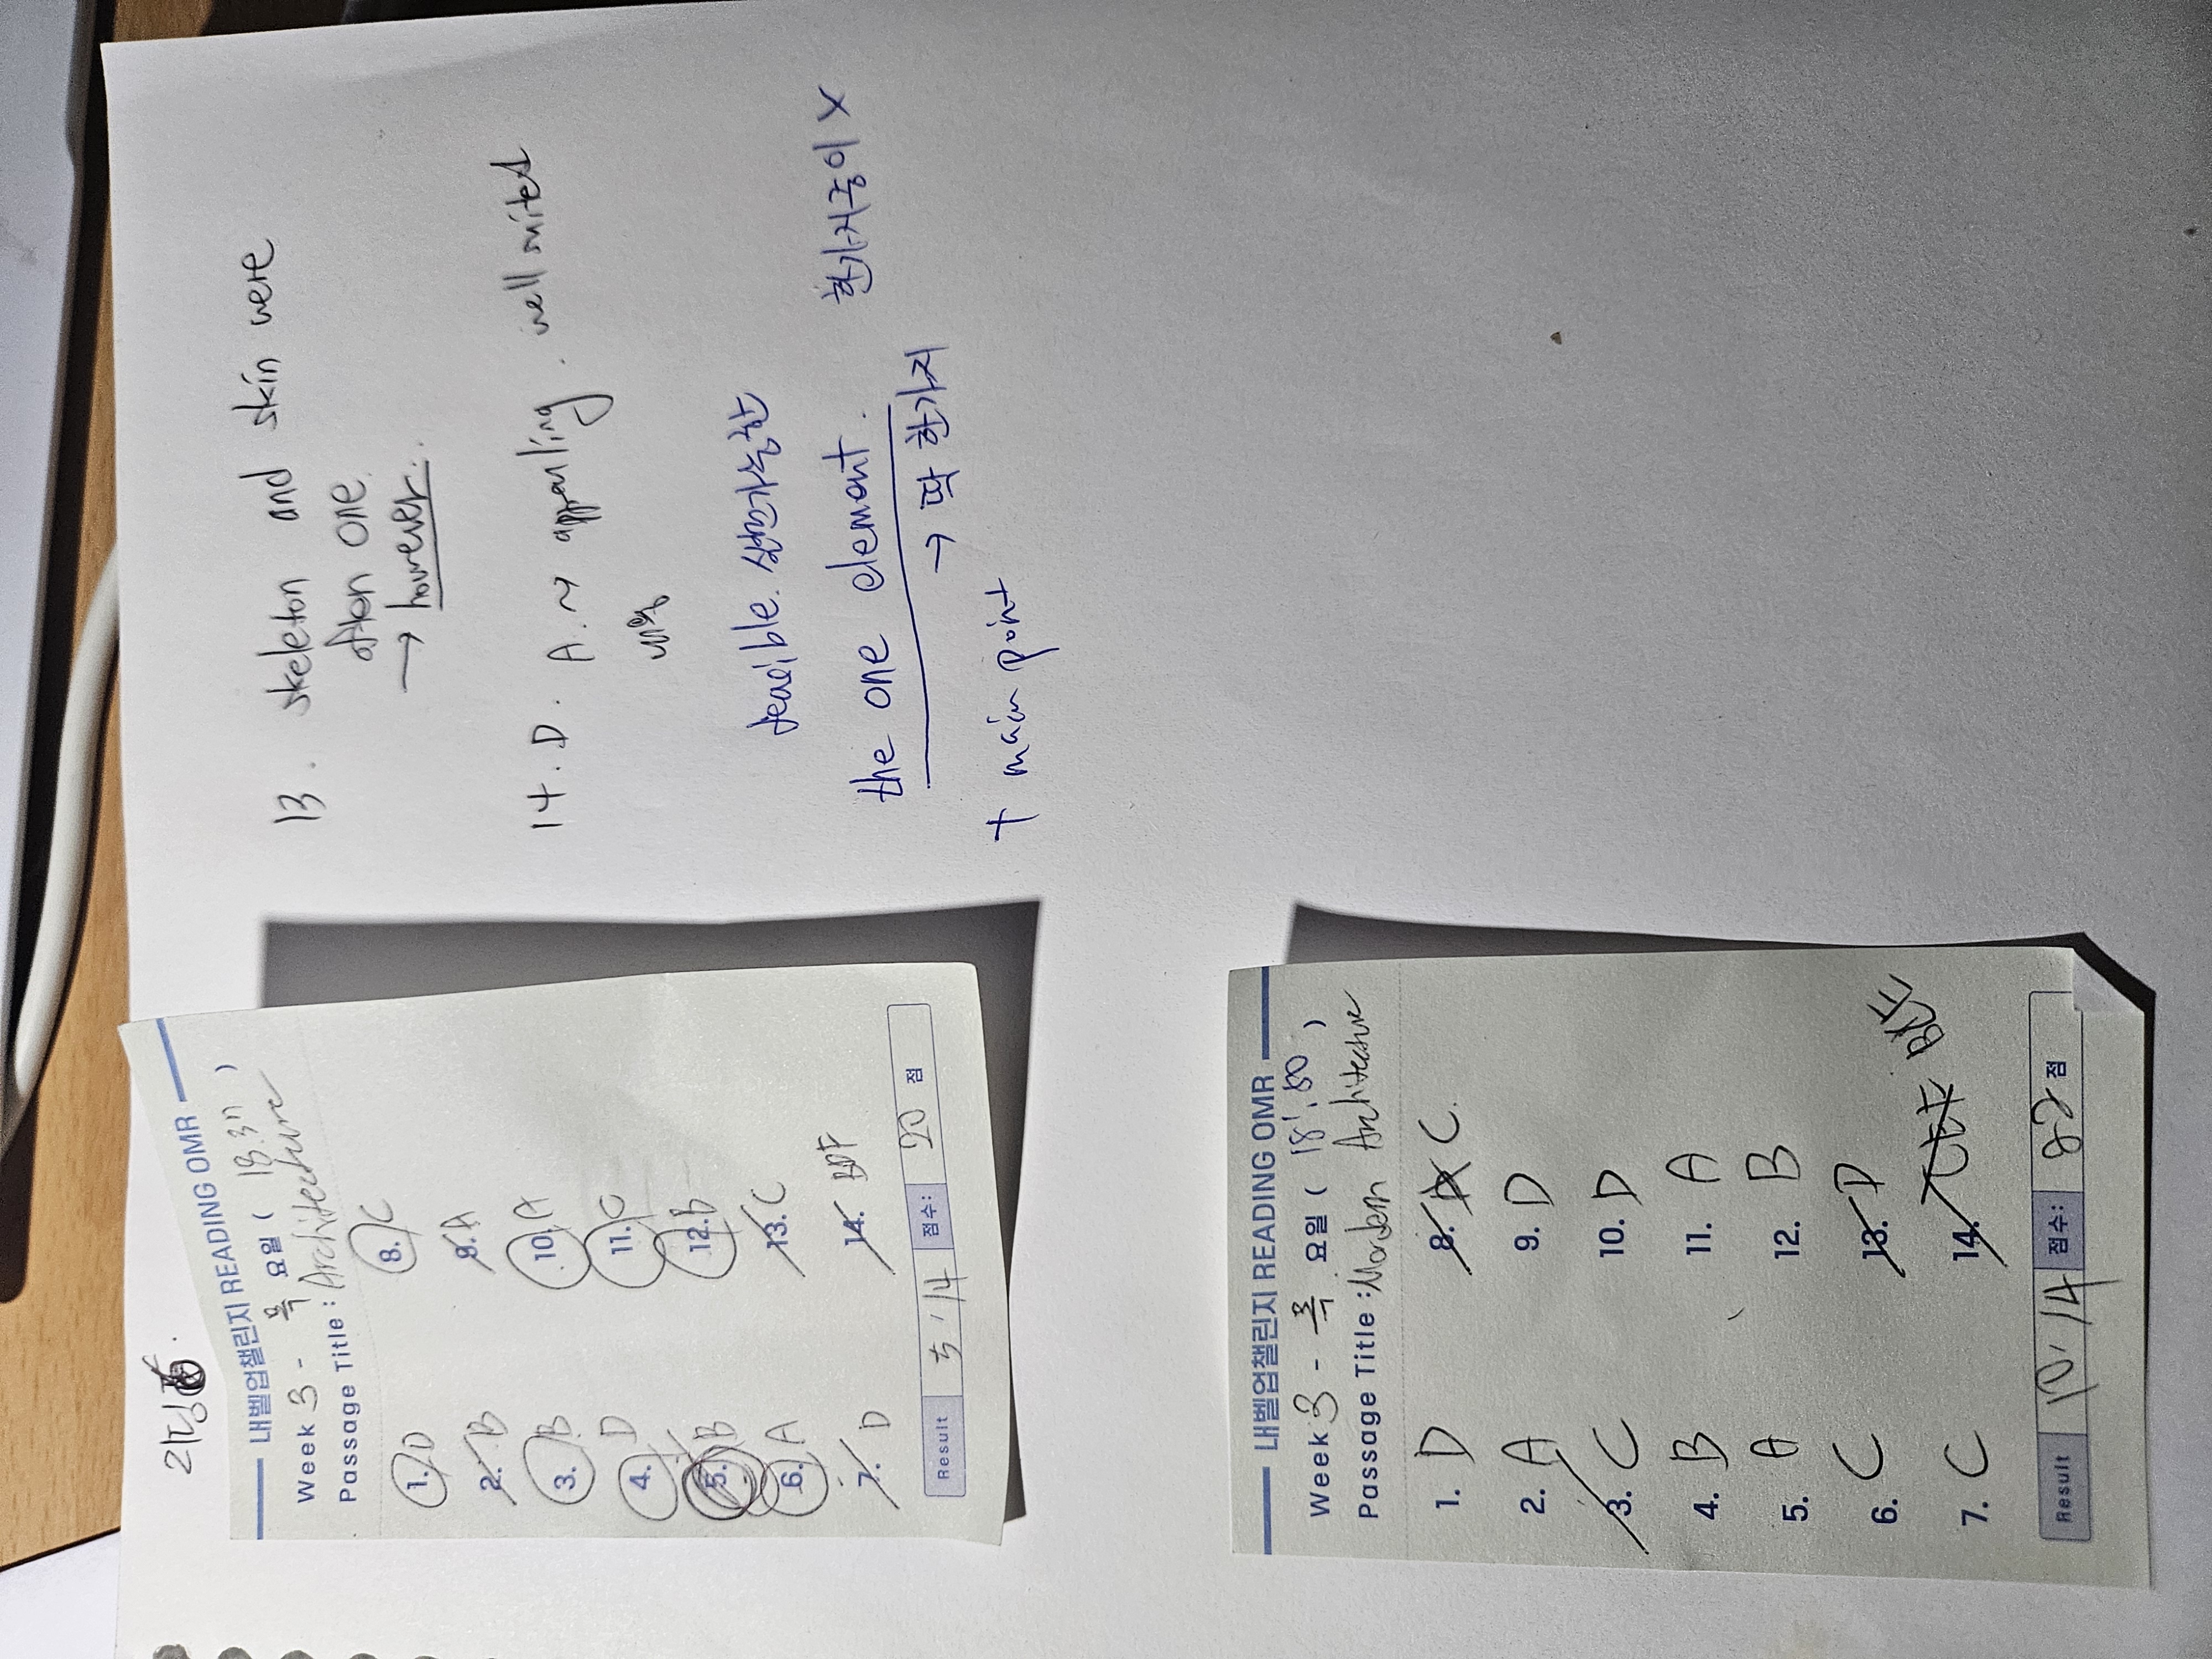 리딩
내벨업챌린지 READING OMR
Week 3 - 목 요일 ( 18:37 )
Passage Title : Architecture
1. D
2. B
3. B
4. D
5. B
6. A
7. D
8. C
9. A
10. A
11. C
12. B
13. C
14. BDF
Result 5 / 14 점수: 20 점
내벨업챌린지 READING OMR
Week 3 - 목 요일 ( 18:50 )
Passage Title : Mordern Architecture
1. D
2. A
3. C
4. B
5. A
6. C
7. C
8. C.
9. D
10. D
11. A
12. B
13. D
14.
Result 10 / 14 점수: 82 점
13. skeleton and skin were
often one.
→ however.
14. D. A. ~ appealing. well suited
feasible. 실현가능한
the one element. 한가지중이 X
→ 딱 한가지
+ main point